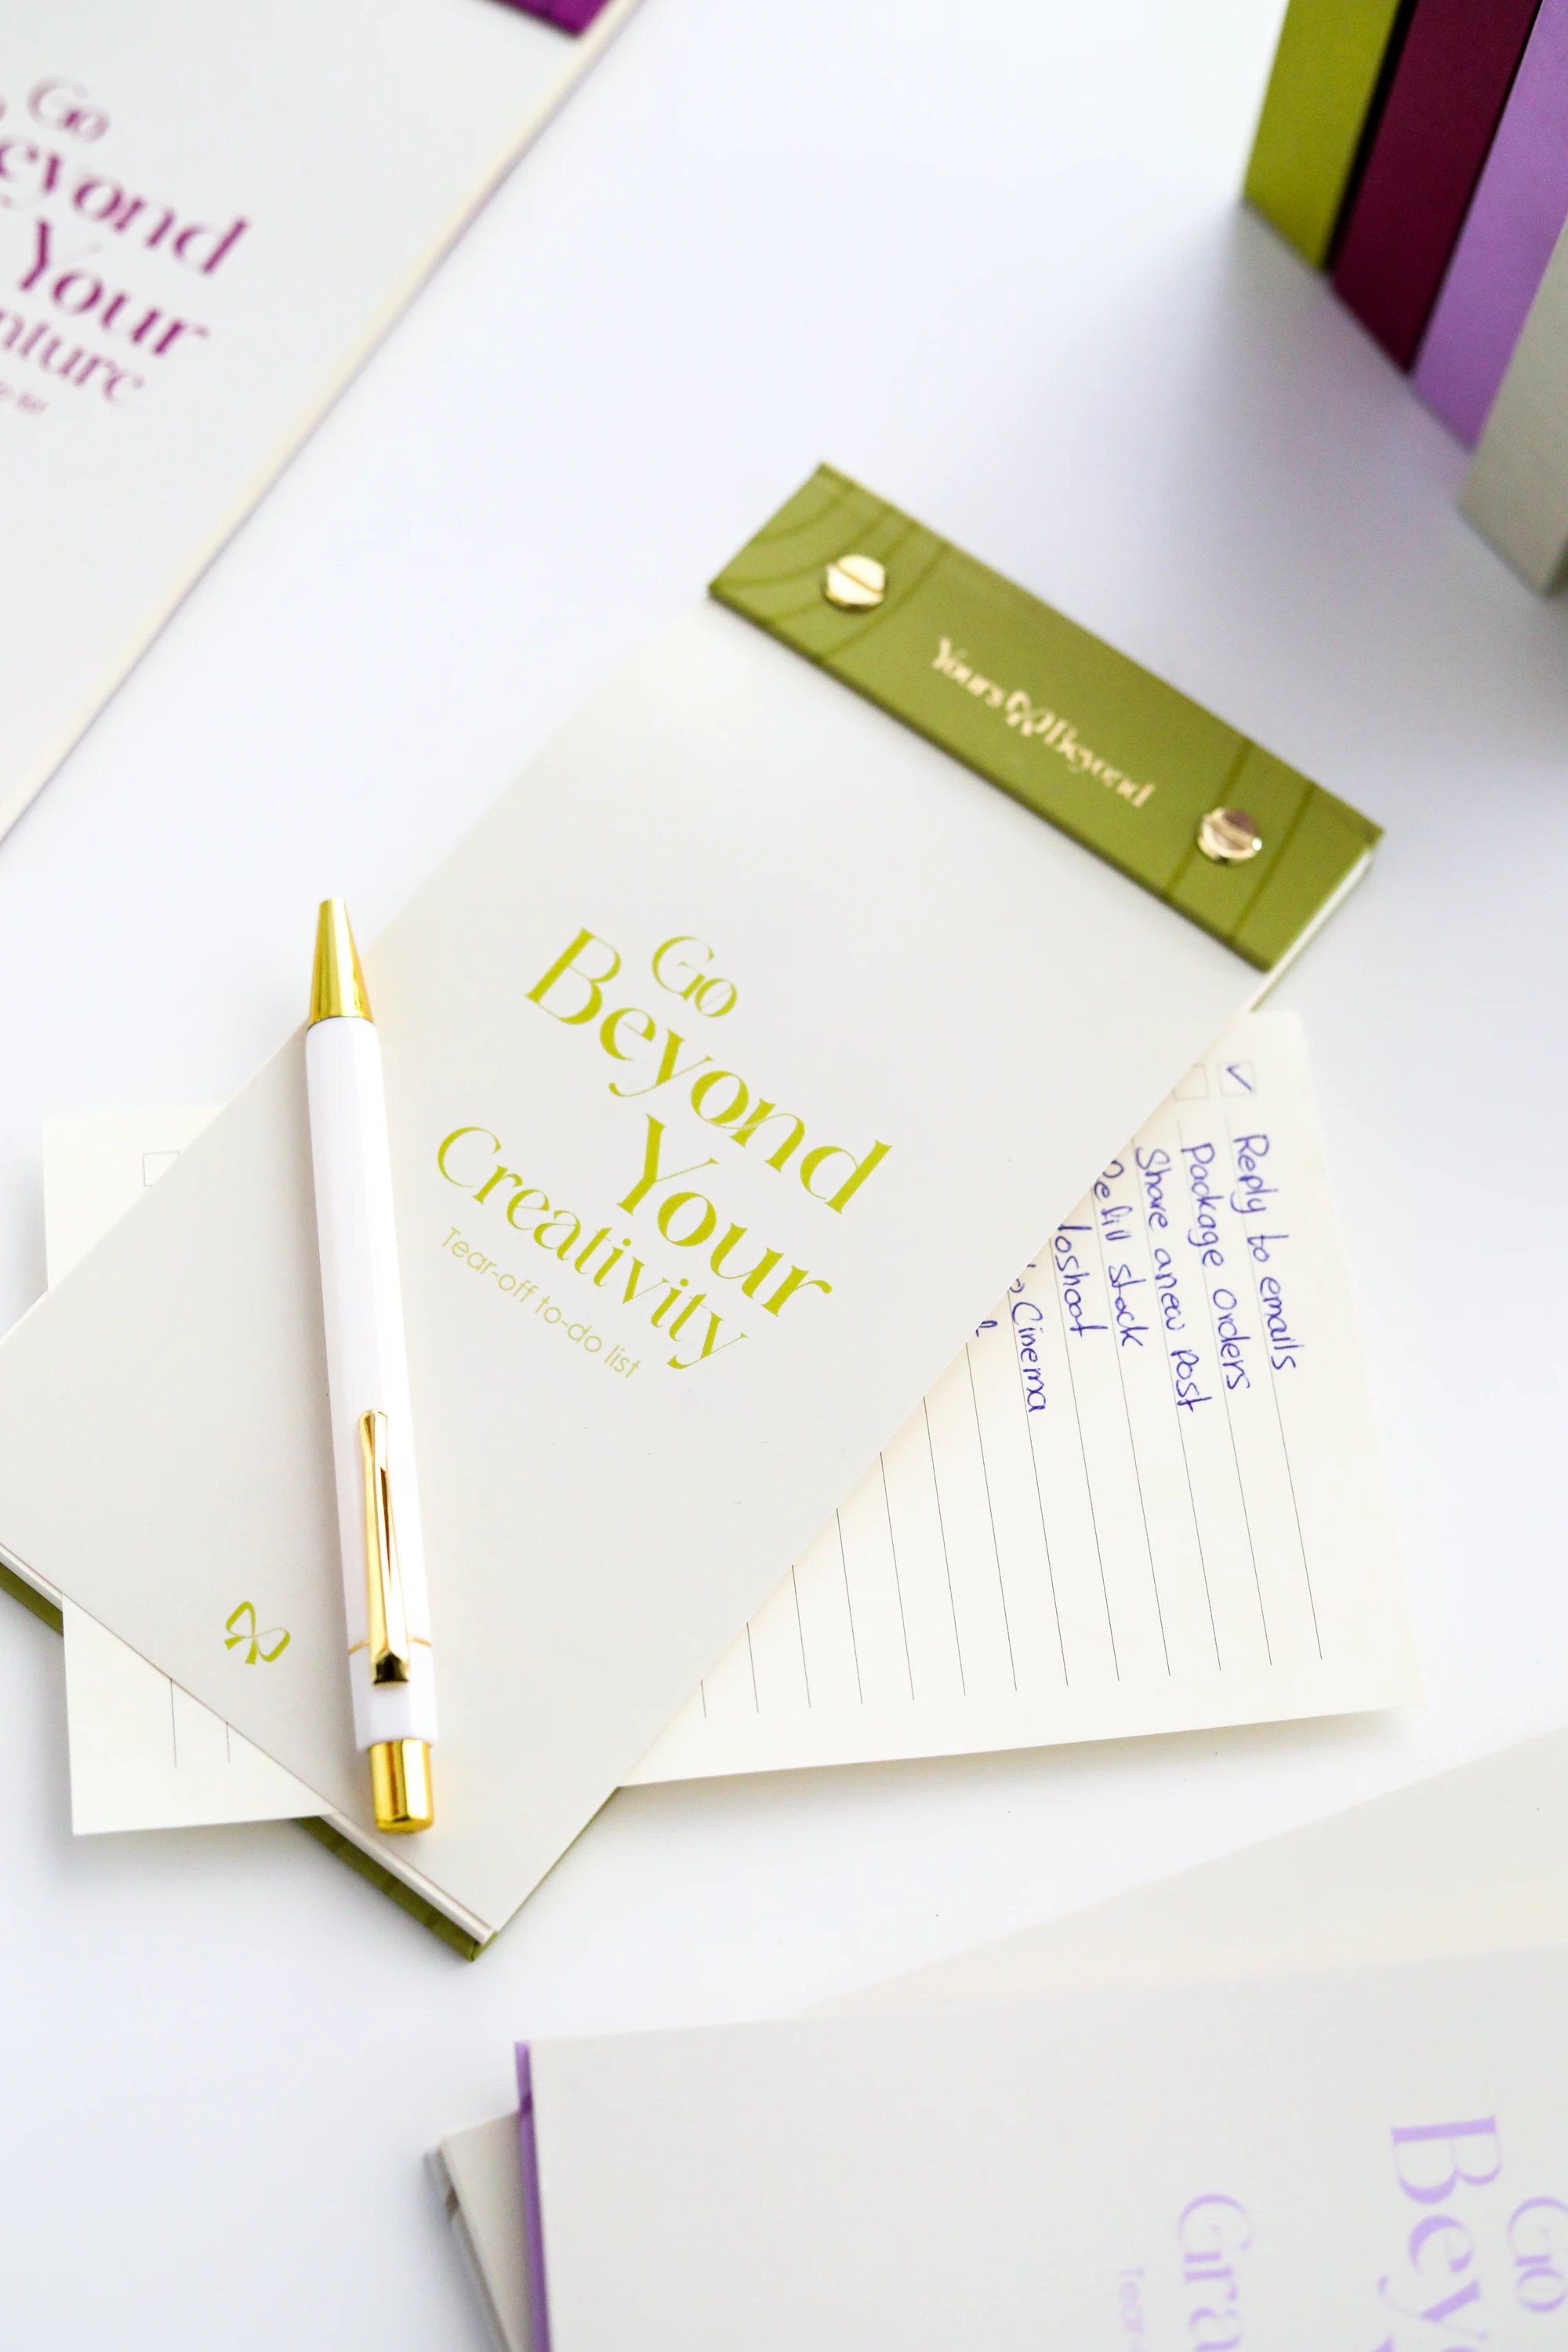 Go
Beyond
Your
Yours Beyond
Go
Beyond
Your
Creativity
Tear-off to-do list
Reply to emails
Package orders
Share a new post
Refill stock
Cinema
Go